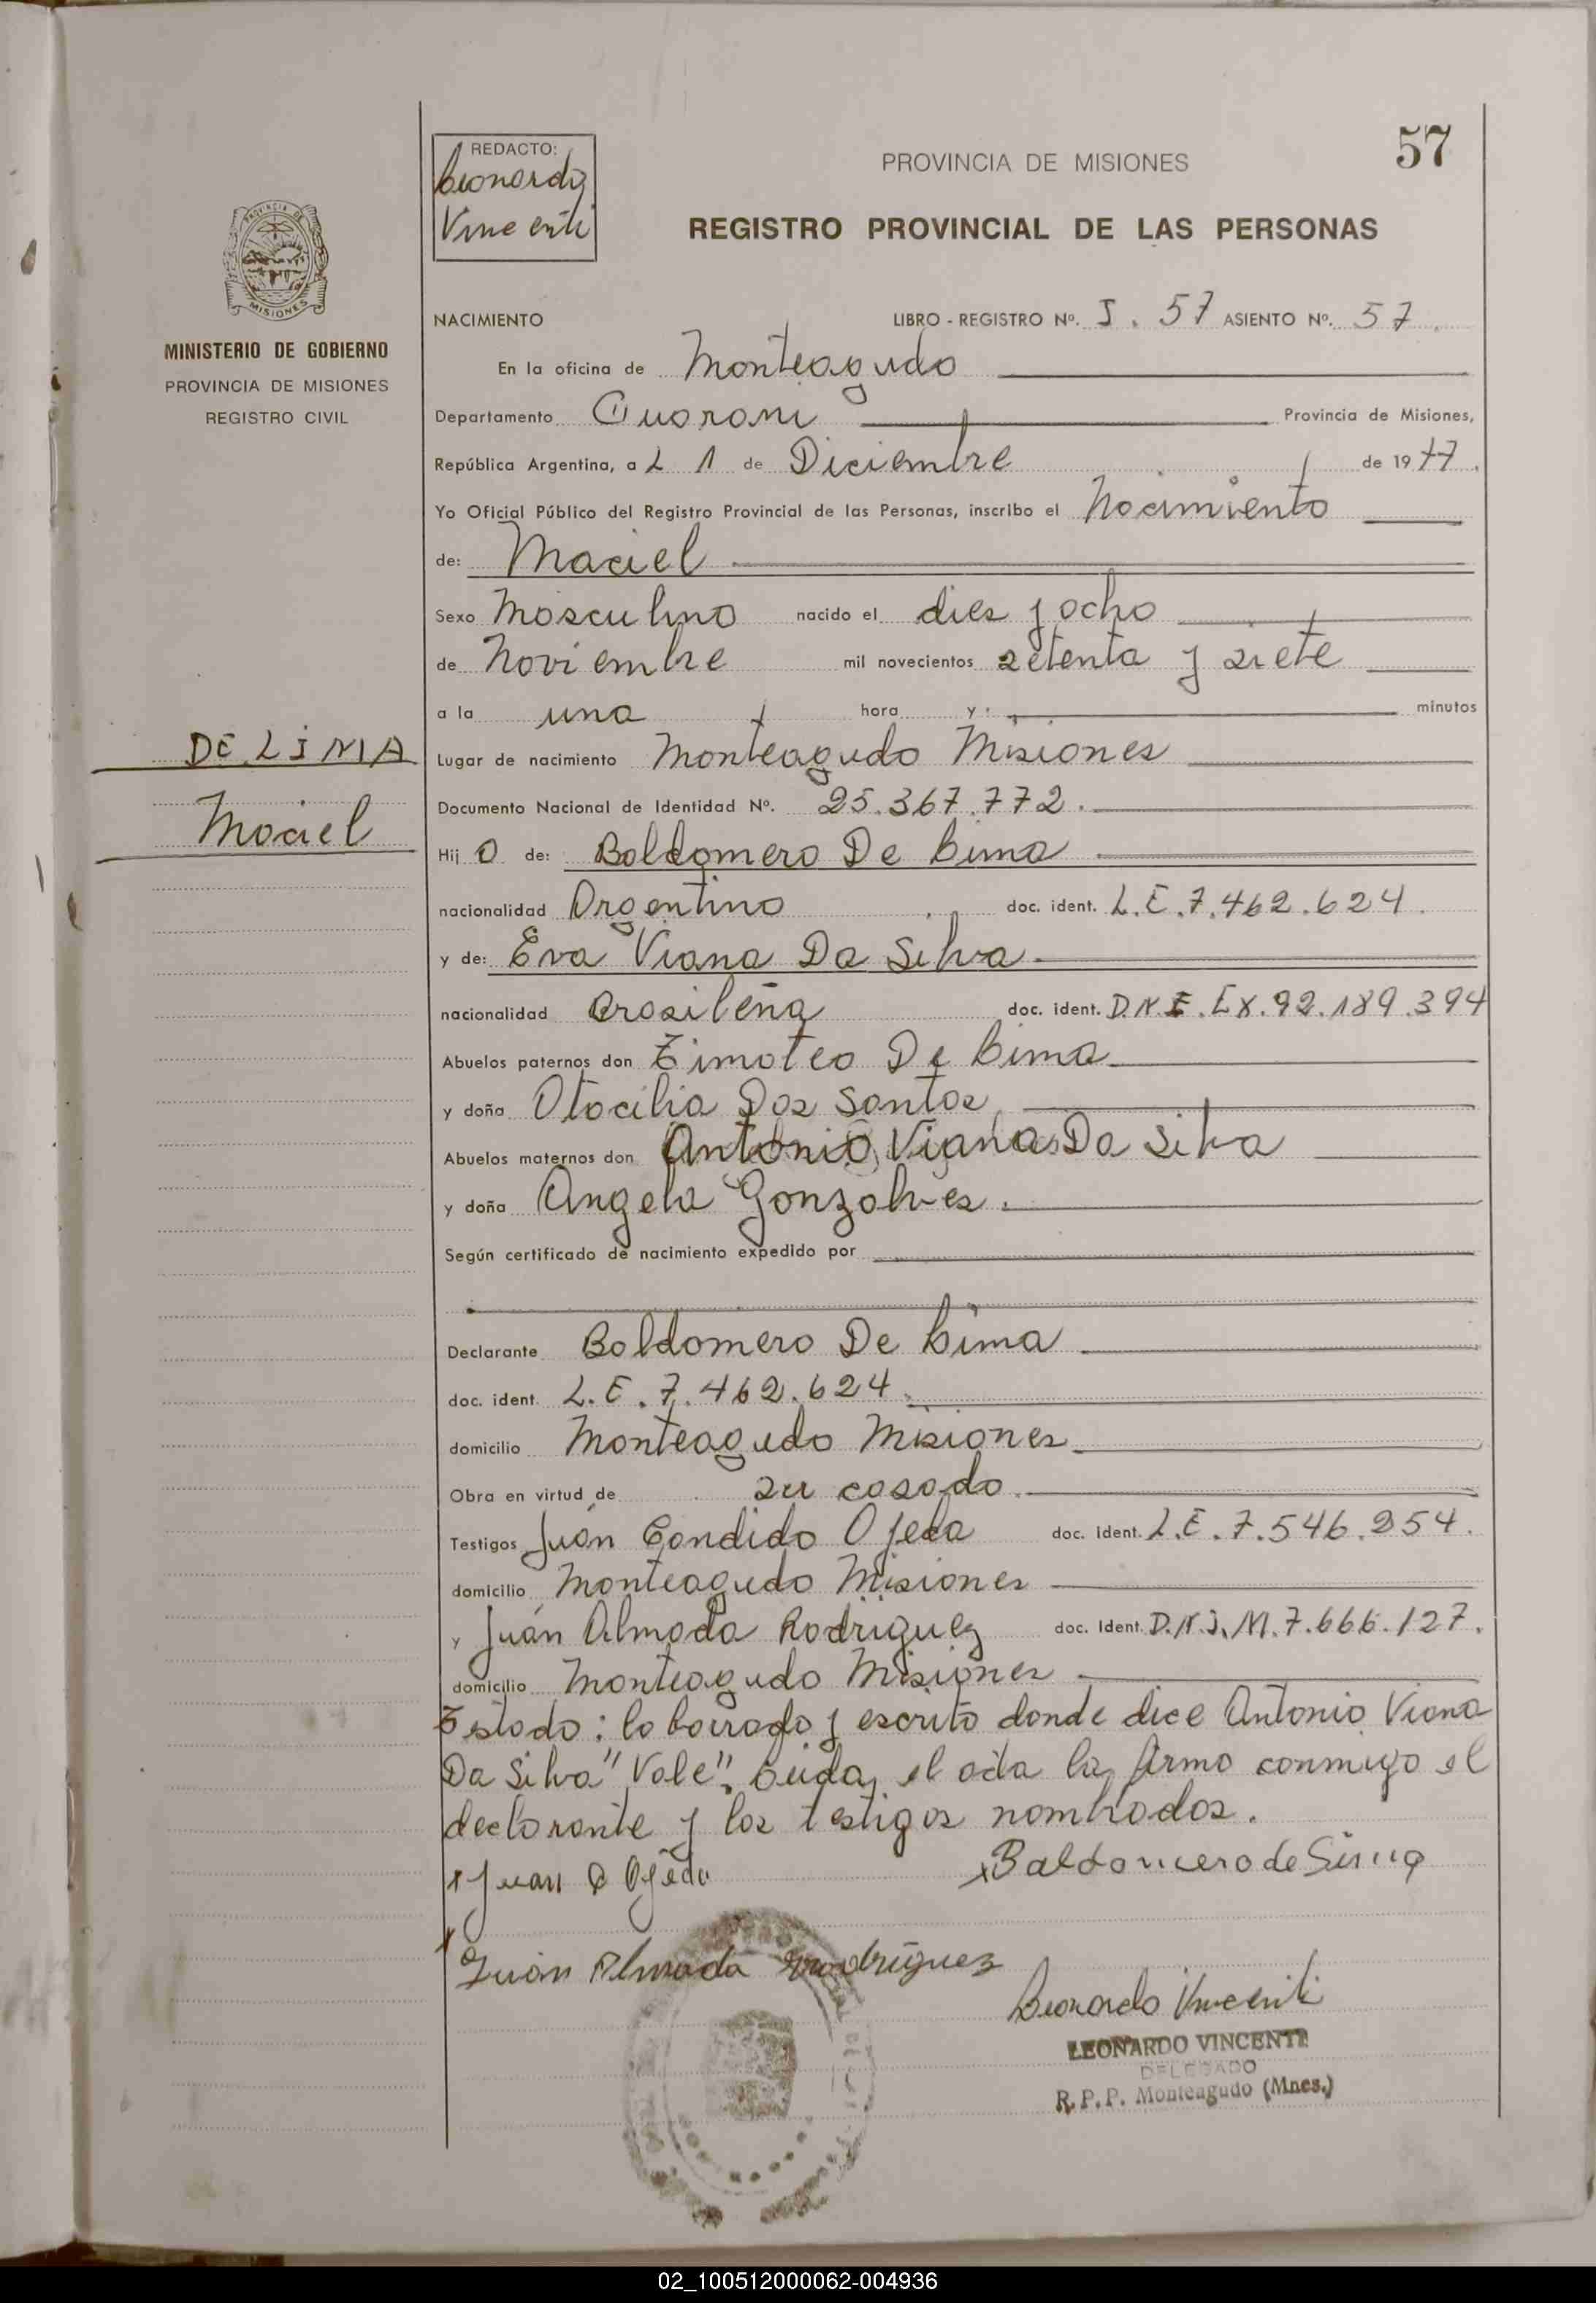 57
REDACTO:
Leonardo
Vincenti
PROVINCIA DE MISIONES
REGISTRO PROVINCIAL DE LAS PERSONAS
PROVINCIA DE
MISIONES
MINISTERIO DE GOBIERNO
PROVINCIA DE MISIONES
REGISTRO CIVIL
DE LIMA
Maciel
NACIMIENTO LIBRO - REGISTRO Nº. I. 57 ASIENTO Nº. 57.
En la oficina de Monteagudo
Departamento Guarani Provincia de Misiones,
República Argentina, a L 1 de Diciembre de 1977.
Yo Oficial Público del Registro Provincial de las Personas, inscribo el Nacimiento
de: Maciel
Sexo Masculino nacido el dies y ocho
de Noviembre mil novecientos setenta y siete
a la una hora y minutos
Lugar de nacimiento Monteagudo Misiones
Documento Nacional de Identidad Nº. 25.367.772.
Hij o de: Baldomero De Lima
nacionalidad Argentino doc. ident. L.E.7.462.624.
y de: Eva Viana Da Silva
nacionalidad Brasileña doc. ident. D.N.I. EX.92.189.394
Abuelos paternos don Timoteo De Lima
y doña Otacilia Dos Santos
Abuelos maternos don Antonio Viana Da Silva
y doña Angela Gonzalves.
Según certificado de nacimiento expedido por
Declarante Baldomero De Lima
doc. ident. L.E.7.462.624.
domicilio Monteagudo Misiones
Obra en virtud de su casado.
Testigos Juán Candido Ojeda doc. ident. L.E.7.546.254.
domicilio Monteagudo Misiones
y Juán Almada Rodriguez doc. Ident. D.N.I. M.7.666.127.
domicilio Monteagudo Misiones
Testado: lo borrado y escrito donde dice Antonio Viana
Da Silva "Vale". Leida el acta la firma conmigo el
declarante y los testigos nombrados.
x Juan C Ojeda x Baldomero de Lima
x Juan Almada Rodriguez
Leonardo Vincenti
LEONARDO VINCENTI
DELEGADO
R.P.P. Monteagudo (Mnes.)
02_100512000062-004936